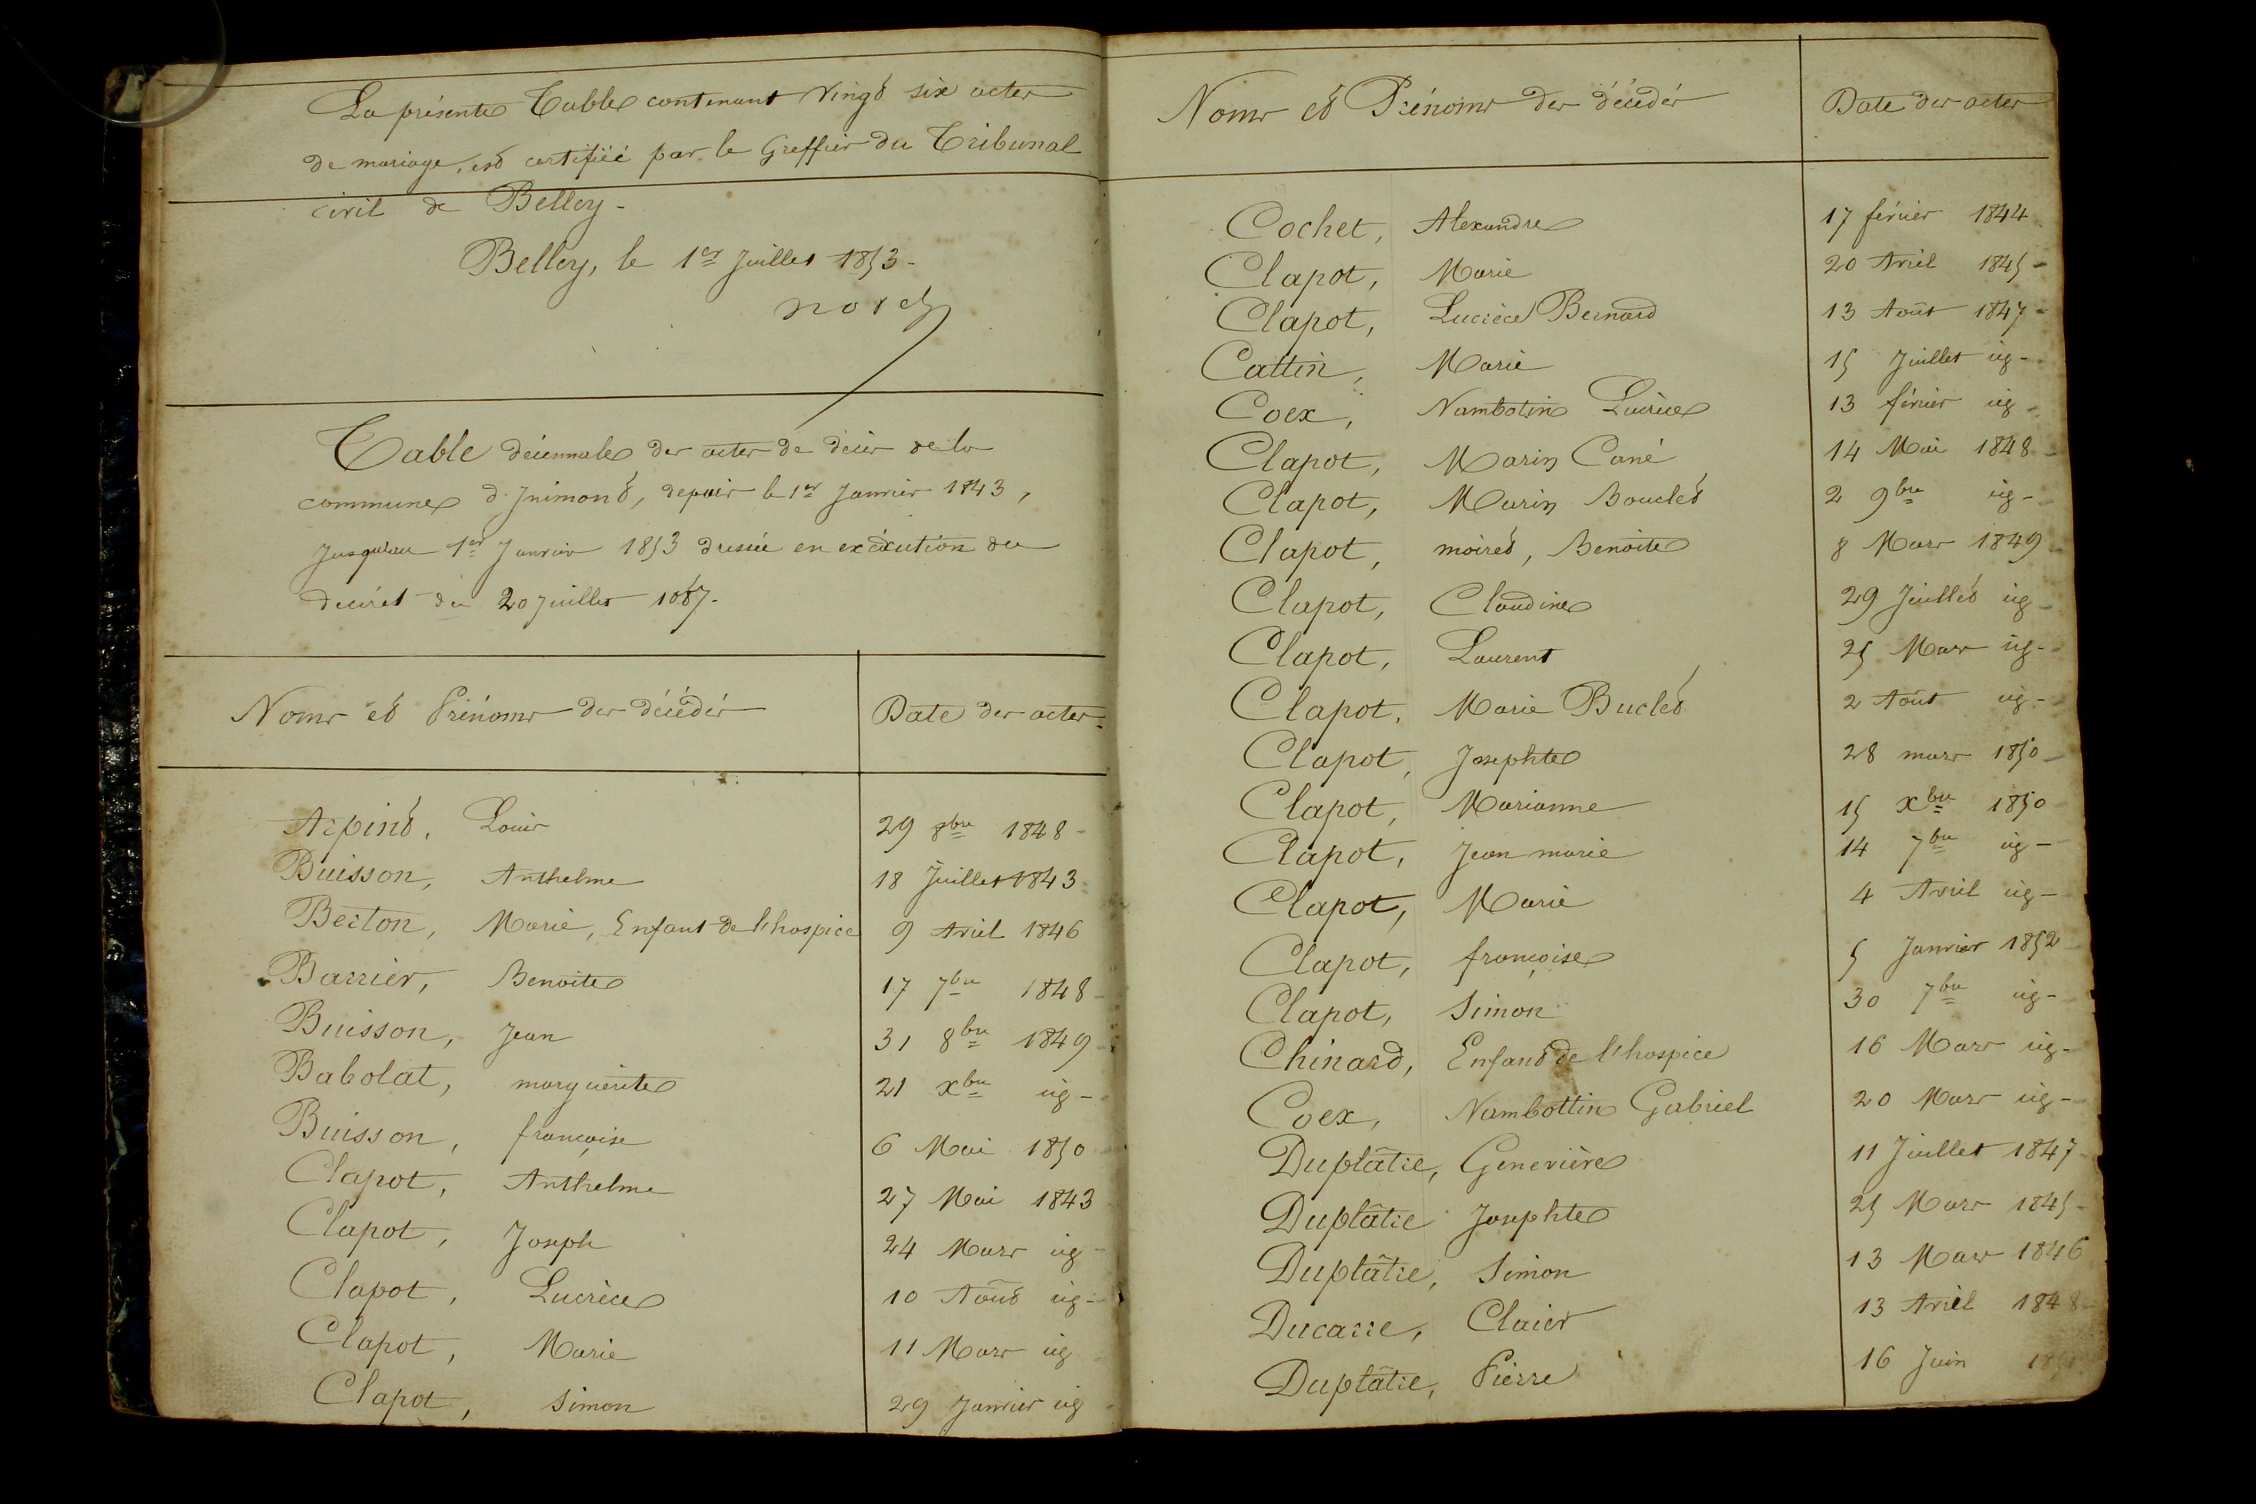 La présente Table contenant Vingt six actes
de mariage, est certifiée par le Greffier du Tribunal
civil de Belley -
Belley, le 1er Juillet 1853 -
Table décennale des actes de décès de la
commune d'Inimont, depuis le 1er Janvier 1843,
Jusqu'au 1er Janvier 1853 dressée en exécution du
décret du 20 Juillet
Noms et Prénoms des décédés Date des actes
Arpint, Louis 29 8bre 1848 -
Buisson, Anthelme 18 Juillet 1843
Berton, Marie, Enfant de l'hospice 9 Avril 1846
Barrier, Benoite 17 7bre 1848 -
Buisson, Jean 31 8bre 1849 -
Babolat, marguerite 21 xbre id -
Buisson, françoise 6 Mai 1850
Clapot, Anthelme 27 Mai 1843
Clapot, Joseph 24 Mars id -
Clapot, Lucrèce 10 Août id -
Clapot, Marie 11 Mars id
Clapot, Simon 29 Janvier id
Noms et Prénoms des décédés Date des actes
Cochet, Alexandre 17 février 1844
Clapot, Marie 20 Avril 1845 -
Clapot, Lucrèce Bernard 13 Août 1847 -
Cattin, Marie 15 Juillet id -
Coex, Nambotin Lucrèce 13 février id -
Clapot, Marin Cané 14 Mai 1848 -
Clapot, Marin Bouclet 2 9bre id -
Clapot, moiret, Benoite 8 Mars 1849
Clapot, Claudine 29 Juillet id -
Clapot, Laurent 25 Mars id -
Clapot, Marie Buclet 2 Août id -
Clapot, Josephte 28 mars 1850 -
Clapot, Marianne 15 xbre 1850
Clapot, Jean marie 14 7bre id -
Clapot, Marie 4 Avril id -
Clapot, françoise 5 Janvier 1852
Clapot, Simon 30 7bre id -
Chinard, Enfant de l'hospice 16 Mars id -
Coex, Nambottin Gabriel 20 Mars id -
Duplâtre, Geneviève 11 Juillet 1847
Duplâtre Josephte 25 Mars 1845 -
Duplâtre, Simon 13 Mars 1846
Ducarre, Claier 13 Avril 1848
Duplâtre, Pierre 16 Juin